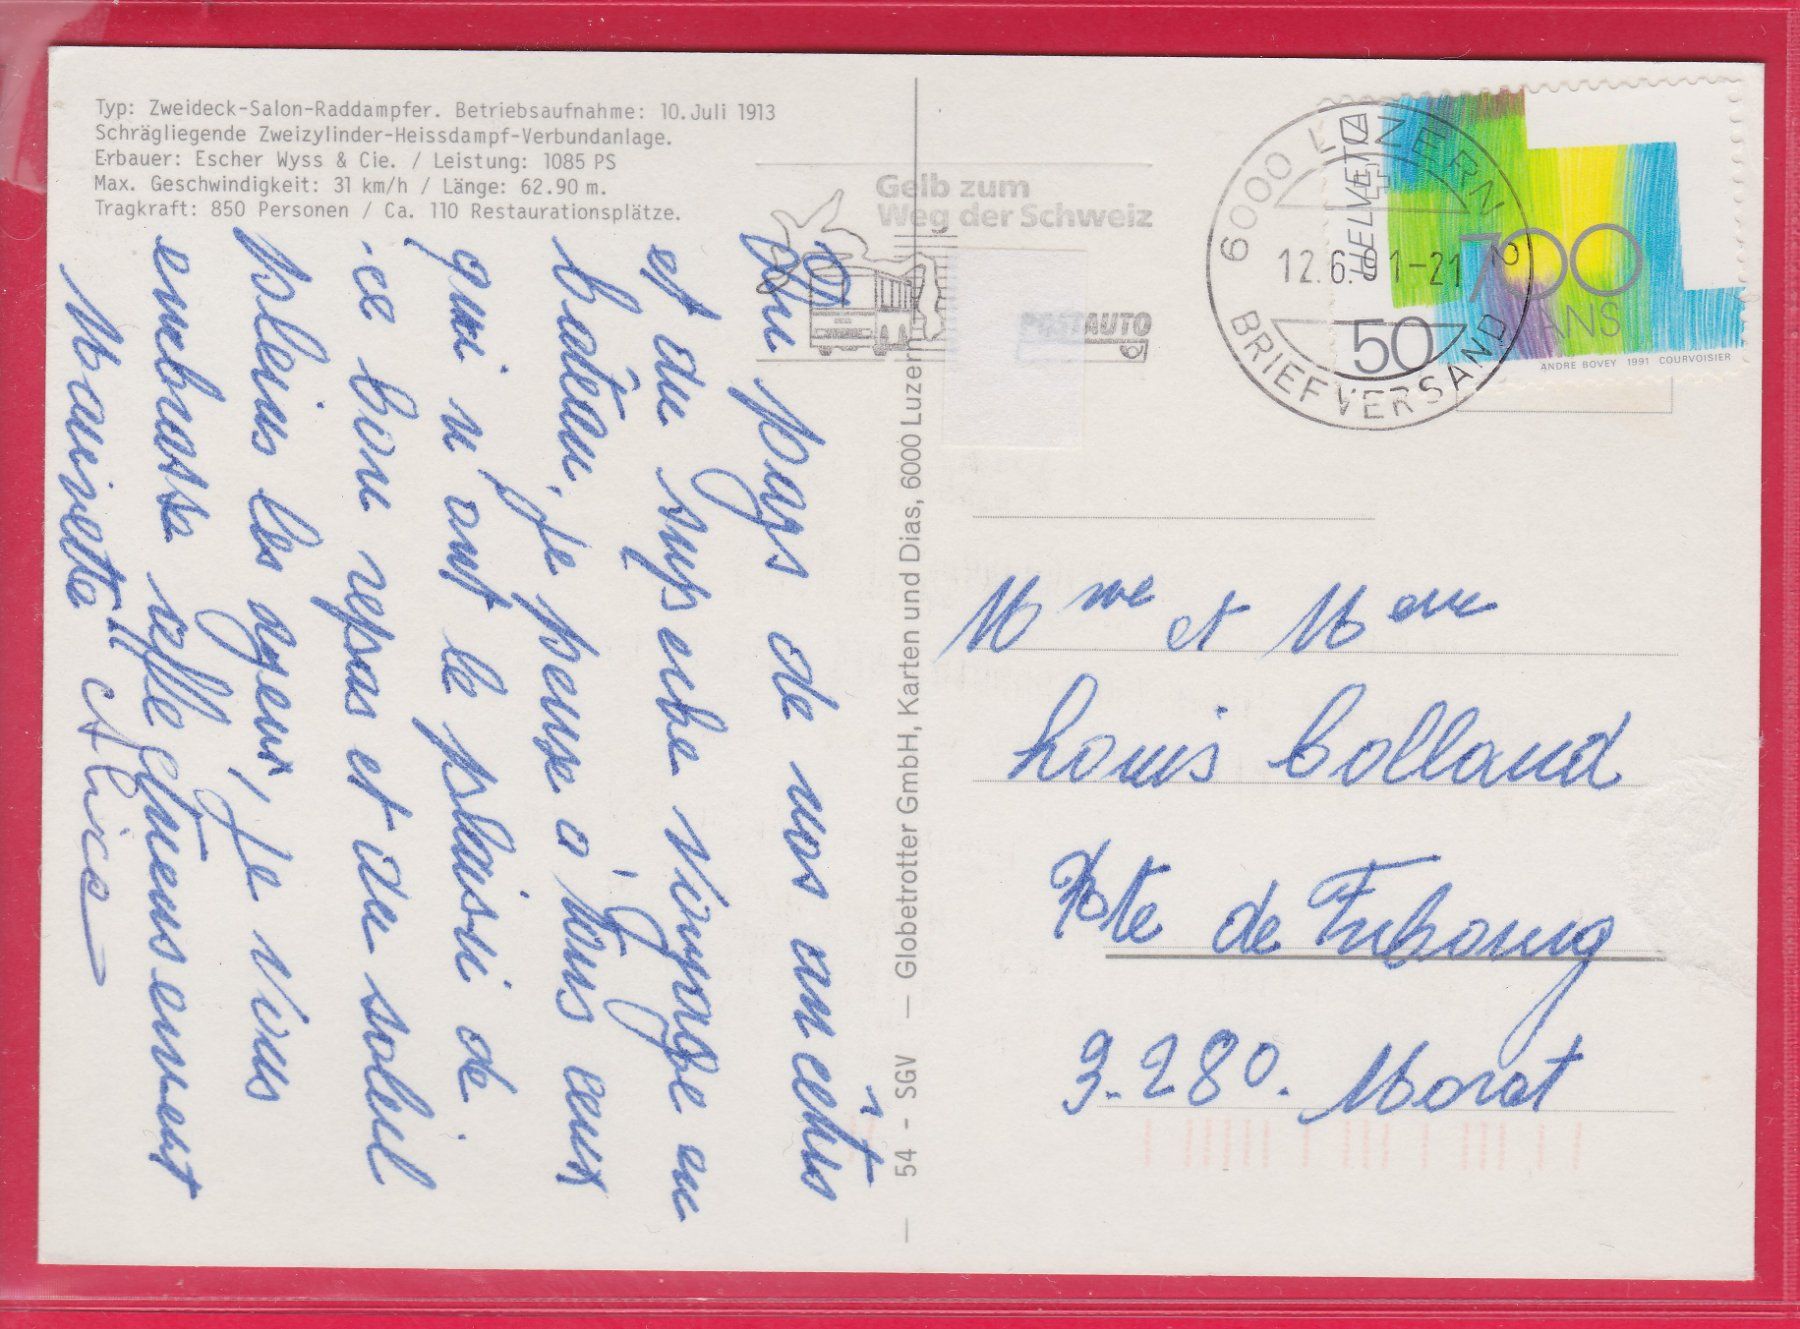 Typ: Zweideck-Salon-Raddampfer. Betriebsaufnahme: 10. Juli 1913
Schrägliegende Zweizylinder-Heissdampf-Verbundanlage.
Erbauer: Escher Wyss & Cie. / Leistung: 1085 PS
Max. Geschwindigkeit: 31 km/h / Länge: 62.90 m.
Tragkraft: 850 Personen / Ca. 110 Restaurationsplätze.
Du pays de nos ancêtres
et du superbe voyage en
bateau, je pense à tous ceux
qui n'ont le plaisir de
ce bon repas et du soleil
pleins les yeux, je vous
embrasse affectueusement
Mauricette Alice
— 54 - SGV — Globetrotter GmbH, Karten und Dias, 6000 Luzern
Gelb zum
Weg der Schweiz
POSTAUTO
6000 LUZERN 2
12.6.91-21
BRIEFVERSAND
HELVETIA
700
ANS
50
ANDRE BOVEY 1991 COURVOISIER
Mme et Mon
Louis Bolland
Rte de Fribourg
3.280. Morat